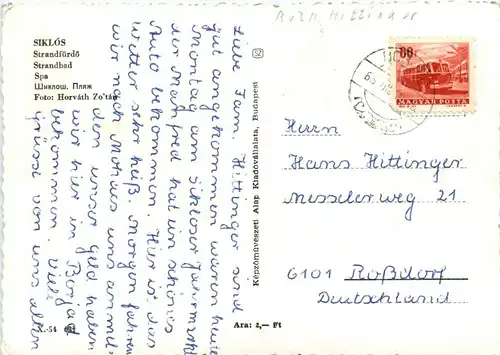 SIKLÓS
Strandfürdő
Strandbad
Spa
Шиклош. Пляж
Foto: Horváth Zoltán
K.-54
Képzőművészeti Alap Kiadóvállalata, Budapest
Ara: 2,— Ft
60
MAGYAR POSTA
Liebe Fam. Hittinger sind
gut angekommen waren heute
Montag am Sikloser Jahrmarkt
der Manfred hat ein schönes
Auto bekommen. Hier ist das
Wetter sehr heiß. Morgen fahren
wir nach Mohacs uns anmel-
den unser Geld haben
wir hier in
bekommen. Viele
Grüsse von uns allen
Herrn
Hans Hittinger
Messelerweg 21
6101 Roßdorf
Deutschland